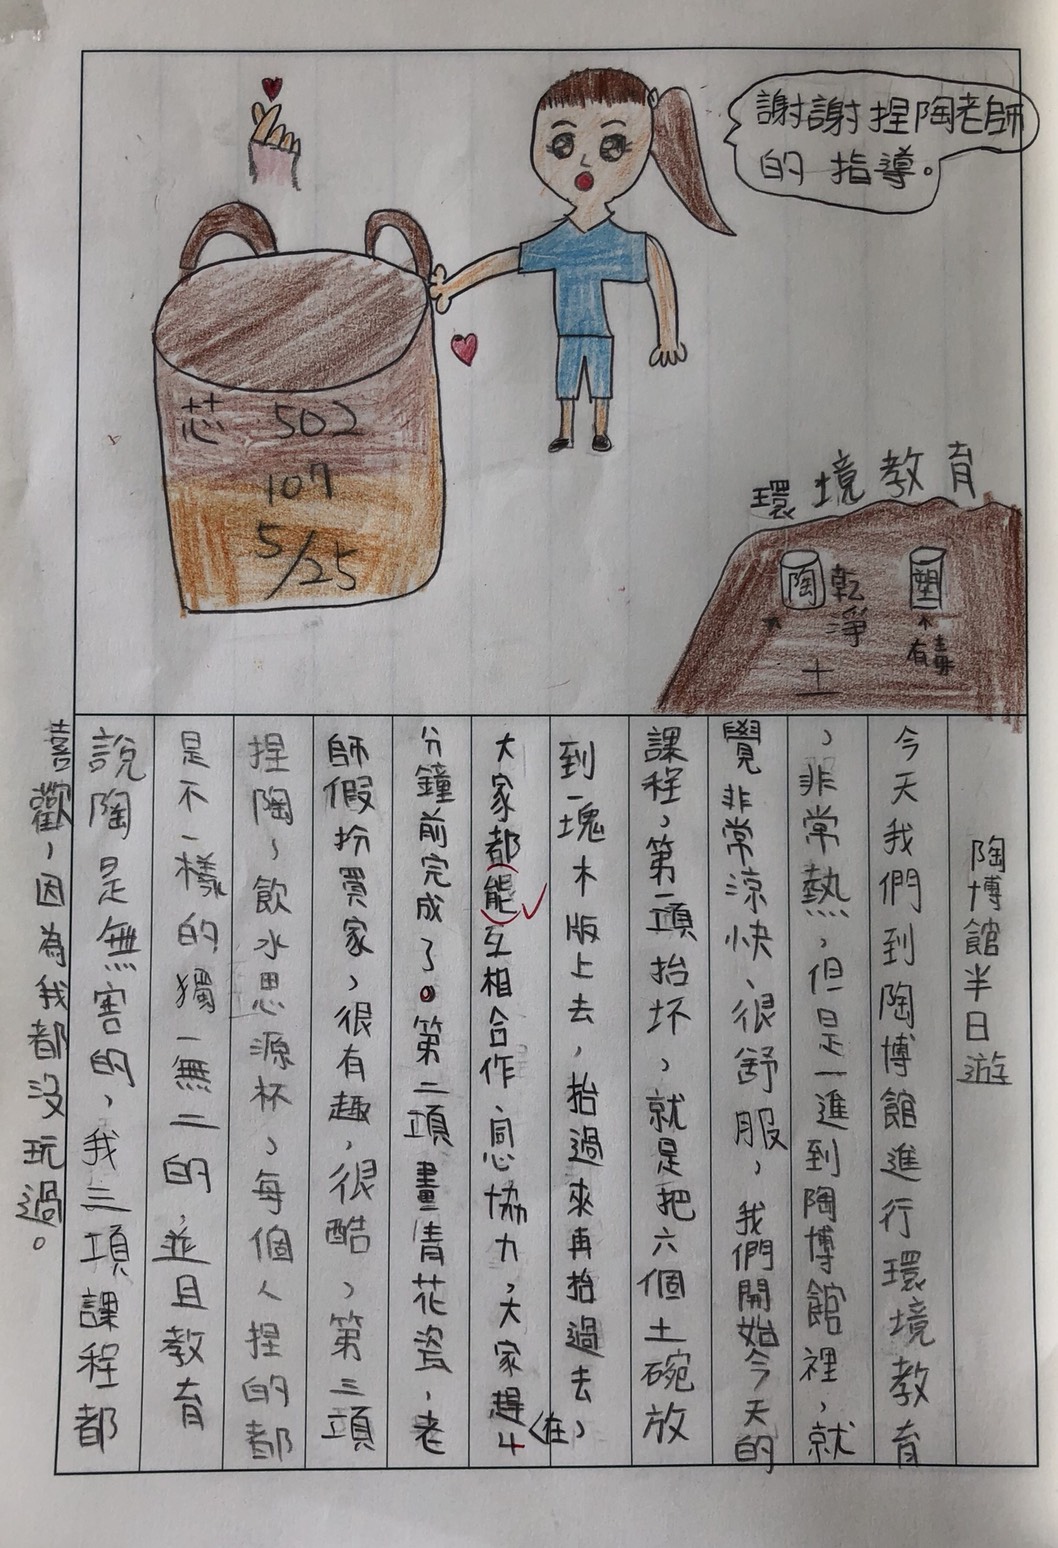 謝謝捏陶老師
的指導。
芯 502
107
5/25
環境教育
陶
乾淨土
塑
有毒
陶博館半日遊
今天我們到陶博館進行環境教育
，非常熱，但是一進到陶博館裡，就
覺非常涼快、很舒服，我們開始今天的
課程，第一項抬坏，就是把六個土碗放
到一塊木版上去，抬過來再抬過去，
大家都能互相合作、同心協力，大家趕
〈在〉
4
分鐘前完成了。第二項畫青花瓷，老
師假扮買家，很有趣，很酷，第三項
捏陶，飲水思源杯，每個人捏的都
是不一樣的獨一無二的，並且教育
說陶是無害的，我三項課程都
喜歡，因為我都沒玩過。